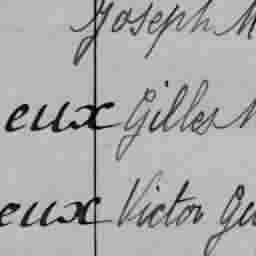 Joseph M
eux Gilles N
eux Victor Gu